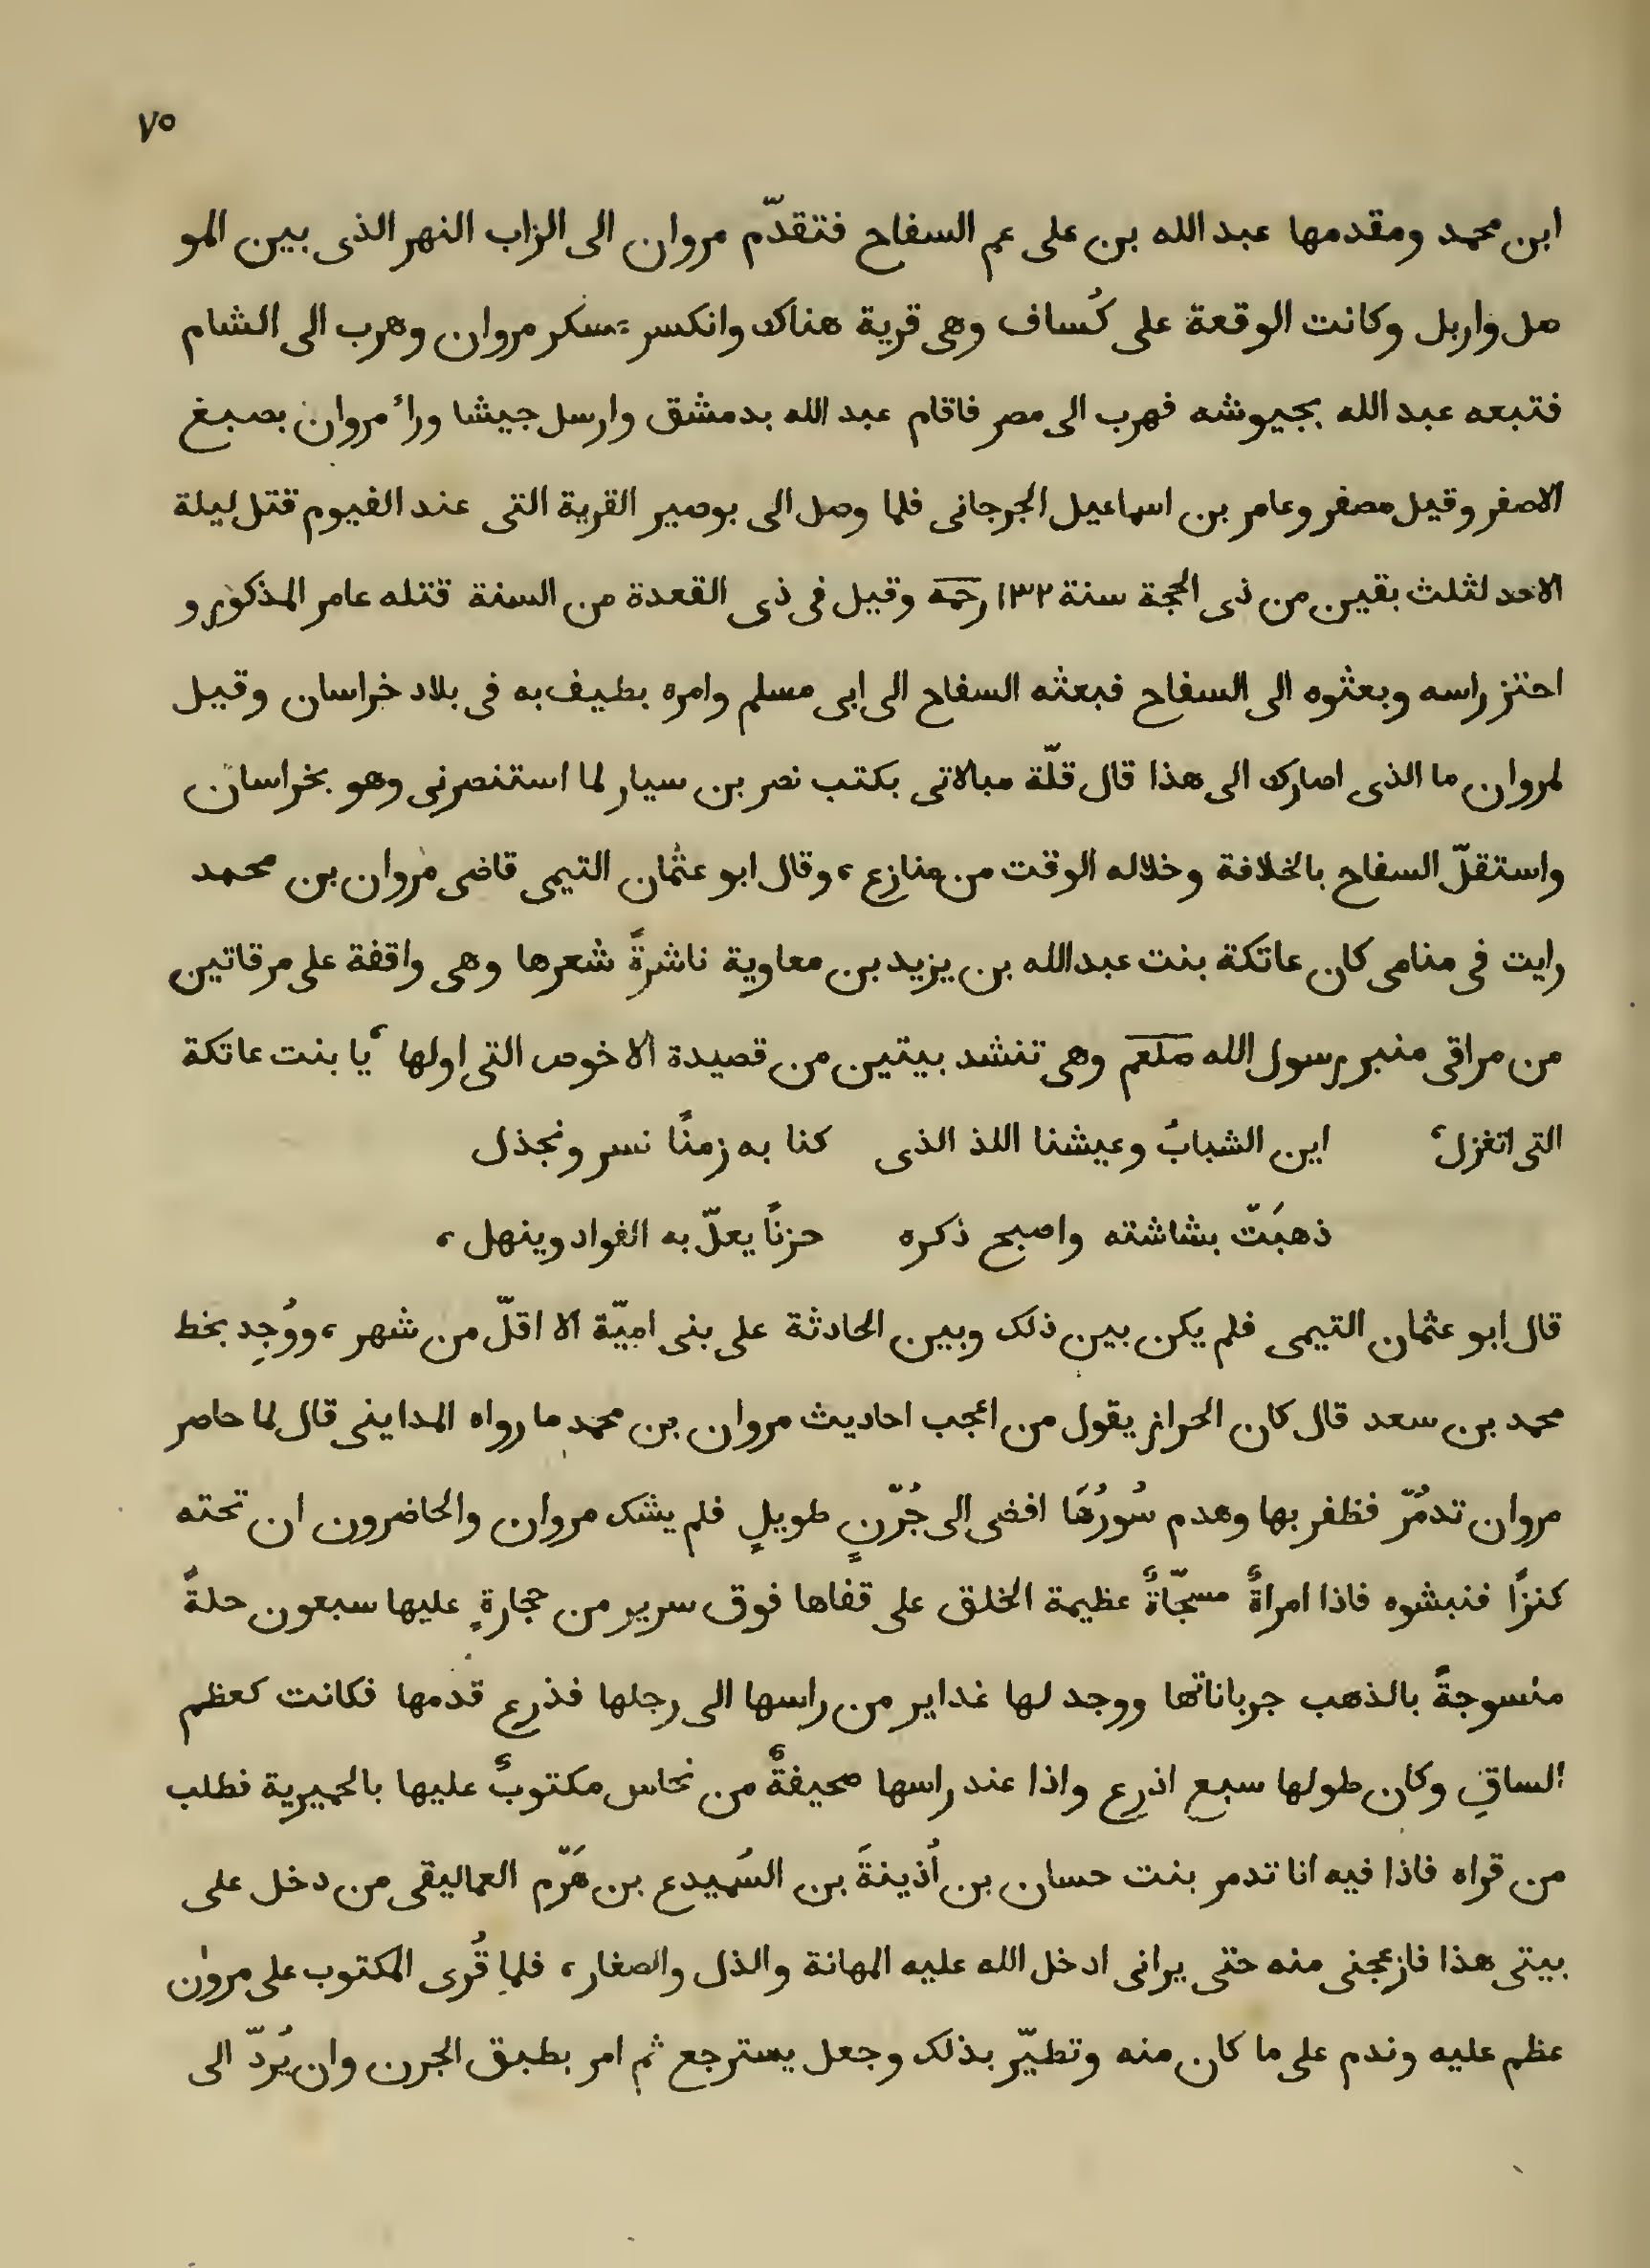 ٧٥
ابن محمد ومقدمها عبد الله بن على عم السفاح فتقدّم مروان الى الزاب النهر الذى بين المو
صل واربل وكانت الوقعة على كُساف وهى قرية هناك وانكسر عسكر مروان وهرب الى الشام
فتبعه عبد الله بجيوشه فهرب الى مصر فاقام عبد الله بدمشق وارسل جيشا وراء مروان بصبغ
الاصفر وقيل مصفر وعامر بن اسماعيل الجرجانى فلما وصل الى بوصير القرية التى عند الفيوم قتل ليلة
الاحد لثلث بقين من ذى الحجة سنة ١٣٢ رحمه وقيل فى ذى القعدة من السنة قتله عامر المذكور و
احتز راسه وبعثوه الى السفاح فبعثه السفاح الى ابى مسلم وامره بطيف به فى بلاد خراسان وقيل
لمروان ما الذى اصارك الى هذا قال قلّة مبالاتى بكتب نصر بن سيار لما استنصرنى وهو بخراسان
واستقلّ السفاح بالخلافة وخلاله الوقت من منازع ، وقال ابو عثمان التيمى قاضى مروان بن محمد
رايت فى منامى كان عاتكة بنت عبدالله بن يزيد بن معاوية ناشرةً شعرها وهى واقفة على مرقاتين
من مراقى منبر رسول الله صلعم وهى تنشد بيتين من قصيدة الاخوص التى اولها ، يا بنت عاتكة
التى اتغزل ، اين الشبابُ وعيشنا اللذ الذى كنا به زمنًا نسر ونجذل
ذهبَتّ بشاشته واصبح ذكره حزنًا يعلّ به الفواد وينهل ،
قال ابو عثمان التيمى فلم يكن بين ذلك وبين الحادثة على بنى اميّة الا اقلّ من شهر ، ووُجِد بخط
محمد بن سعد قال كان الحراز يقول من اعجب احاديث مروان بن محمد ما رواه المداينى قال لما حاصر
مروان تدمُرّ فظفر بها وهدم سُورُهَا افضى الى جُرّنٍ طويلٍ فلم يشك مروان والحاضرون ان تحته
كنزًا فنبشوه فاذا امراةٌ مسجّاةٌ عظيمة الخلق على قفاها فوق سرير من حجارةٍ عليها سبعون حلةً
منسوجةً بالذهب جرباناتها ووجد لها غداير من راسها الى رجلها فذرع قدمها فكانت كعظم
الساقِ وكان طولها سبع اذرع واذا عند راسها صحيفةٌ من نحاس مكتوبٌ عليها بالحميرية فطلب
من قراه فاذا فيه انا تدمر بنت حسان بن اُذينةَ بن السُميدع بن هَرّم العماليقى من دخل على
بيتى هذا فازعجنى منه حتى يرانى ادخل الله عليه المهانة والذل والصغار ، فلما قُرى المكتوب على مرون
عظم عليه وندم على ما كان منه وتطيّر بذلك وجعل يسترجع ثم امر بطبق الجرن وان يُردّ الى